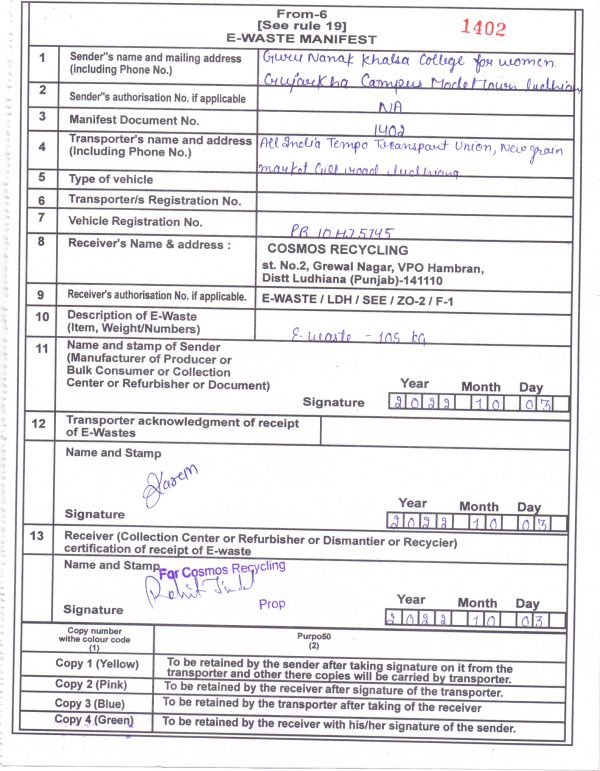 From-6
[See rule 19]
E-WASTE MANIFEST
1402
1 Sender"s name and mailing address
(including Phone No.)
Guru Nanak Khalsa College for women
Gujarkha Campus Model Town ludhiana
2 Sender"s authorisation No. if applicable
NA
3 Manifest Document No.
1402
4 Transporter's name and address
(Including Phone No.)
All India Tempo Transport Union, New grain
market Gill road ludhiana
5 Type of vehicle
6 Transporter/s Registration No.
7 Vehicle Registration No.
PB 10 HZ 5745
8 Receiver's Name & address :
COSMOS RECYCLING
st. No.2, Grewal Nagar, VPO Hambran,
Distt Ludhiana (Punjab)-141110
9 Receiver's authorisation No. if applicable.
E-WASTE / LDH / SEE / ZO-2 / F-1
10 Description of E-Waste
(Item, Weight/Numbers)
E-waste - 105 kg
11 Name and stamp of Sender
(Manufacturer of Producer or
Bulk Consumer or Collection
Center or Refurbisher or Document)
Year Month Day
Signature 2022 10 03
12 Transporter acknowledgment of receipt
of E-Wastes
Name and Stamp
Year Month Day
Signature 2022 10 03
13 Receiver (Collection Center or Refurbisher or Dismantier or Recycier)
certification of receipt of E-waste
Name and Stamp
For Cosmos Recycling
Rohit Jindal
Prop
Year Month Day
Signature 2022 10 03
Copy number
withe colour code
(1)
Purpo60
(2)
Copy 1 (Yellow) To be retained by the sender after taking signature on it from the
transporter and other there copies will be carried by transporter.
Copy 2 (Pink) To be retained by the receiver after signature of the transporter.
Copy 3 (Blue) To be retained by the transporter after taking of the receiver
Copy 4 (Green) To be retained by the receiver with his/her signature of the sender.